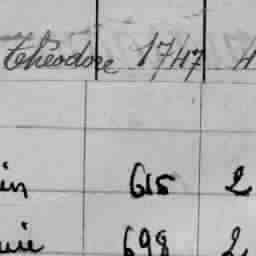 Théodore 1747 4
in 615 2
uie 698 2